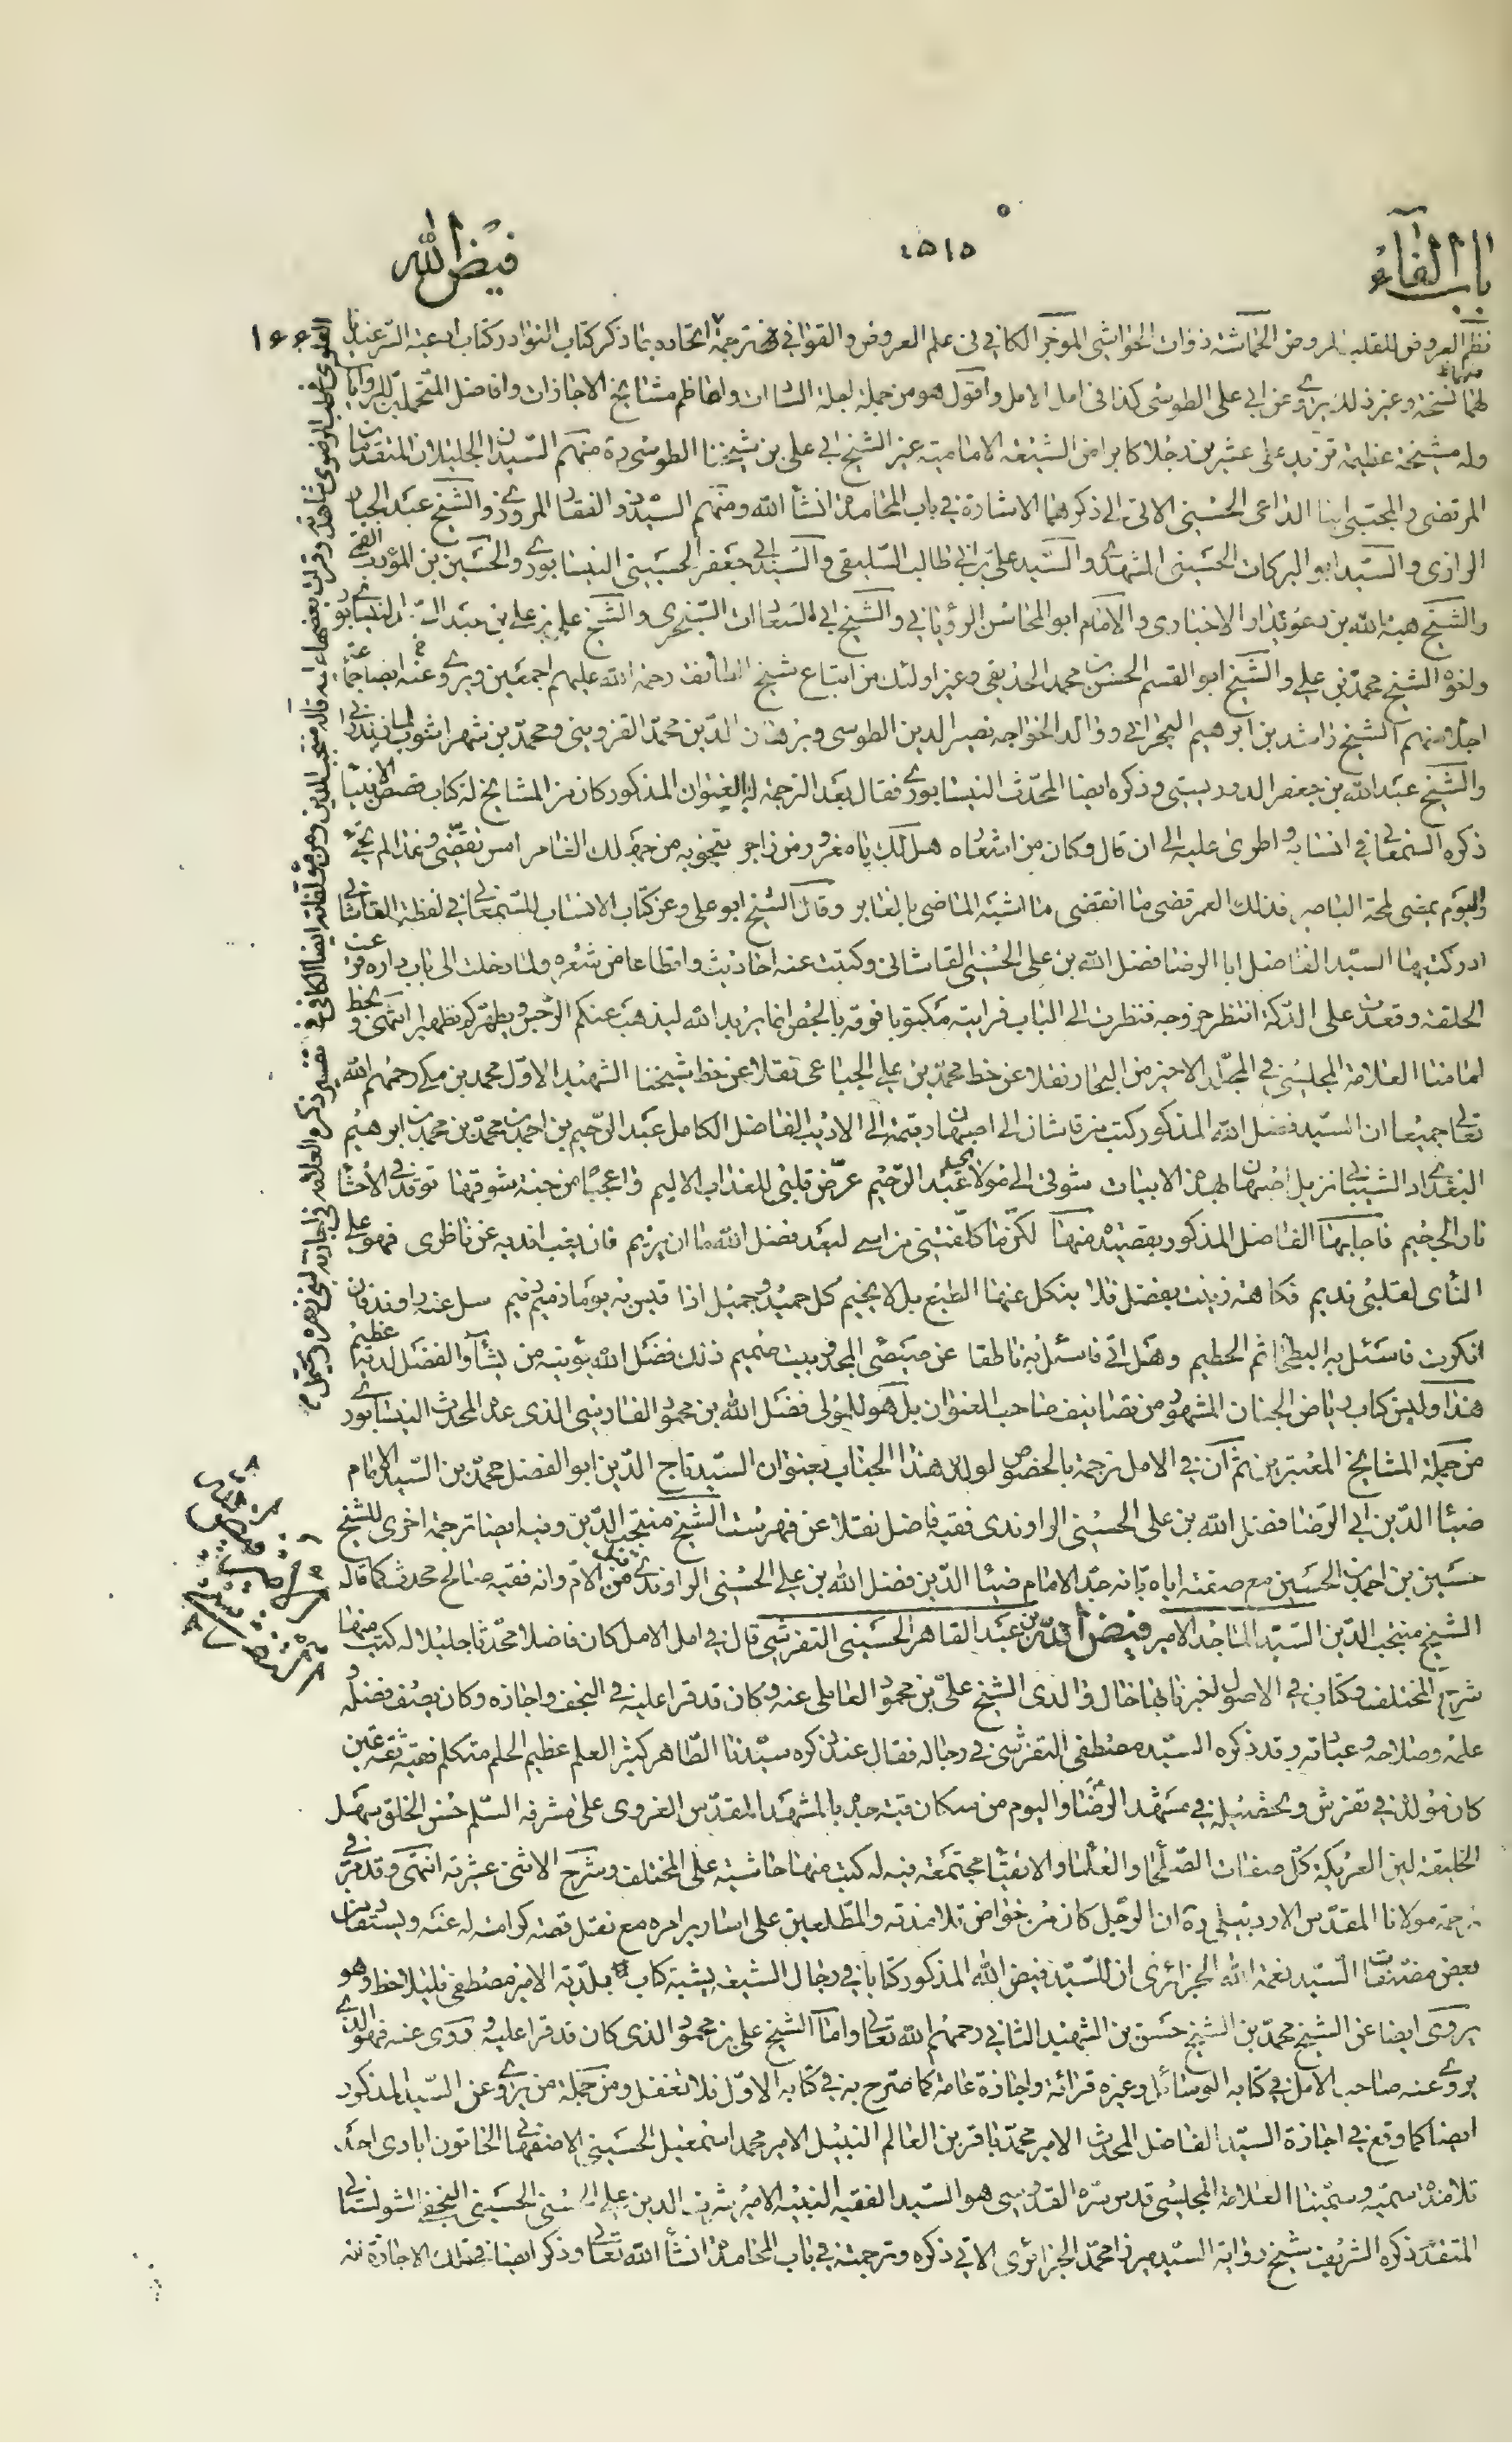 باب الفاء
٥١٥
فيض الله
نظم العروض للقلب المروض الخماسية ذوات الحواشي الموجز الكافي في علم العروض والقوافي
لهما نسخة وغير ذلك يروى عن ابي علي الطوسي كذا في امل الامل واقول هو من جملة اجلة السادات واعاظم مشايخ الاجازات وافاضل المتحملين للروايات
وله مشيخة عظيمة تزيد على عشرين رجلا كابرا من الشيعة الامامية غير الشيخ ابي علي بن شيخنا الطوسي ره منهم السيدان الجليلان المتقدمان
المرتضى والمجتبى ابنا الداعي الحسني الاتي الى ذكرهما الاشارة في باب المحامدة انشأ الله ومنهم السيد ذو الفقار المروزي والشيخ عبد الجبار
الرازي والسيد ابو البركات الحسيني المشهدي والسيد علي بن ابي طالب السليقي والسيد ابي جعفر الحسيني النيسابوري والحسين بن المؤدب القمي
والشيخ هبة الله بن دعويدار والاخباري والامام ابو المحاسن الروياني والشيخ ابي السعادات الشجري والشيخ علي بن علي بن عبد النيسابوري
واخوه الشيخ محمد بن علي والشيخ ابو القسم الحسن بن محمد الحديقي وغير اولئك من اتباع شيخ الطائفة رحمة الله عليهم اجمعين ويروي عنه ايضا جماعة
اجلاء منهم الشيخ راشد بن ابرهيم البحراني ووالد الخواجه نصير الدين الطوسي وبرهان الدين محمد القزويني ومحمد بن شهراشوب المازندراني
والشيخ عبد الله بن جعفر الدوريستي وذكره ايضا المحدث النيسابوري فقال بعد الترجمة له بالعنوان المذكور كان من المشايخ له كتاب قصص الانبياء
ذكره السمعاني في انسابه واطرى عليه الى ان قال وكان من اشعاره هل لك ياه غرور من زاجر
واليوم يمضي لمحة الباصر فذلك العمر قضى ما انقضى ما اشبه الماضي بالغابر وقال الشيخ ابو علي وعن كتاب الانساب للسمعاني في لفظة القاشاني
ادركت بها السيد الفاضل ابا الرضا فضل الله بن علي الحسني القاشاني وكتبت عنه احاديث واقطاعا من شعره ولما دخلت الى باب داره قرعت
الحلقة وقعدت على الدكة انتظر خروجه فنظرت الى الباب فرايت مكتوبا فوقه بالجص انما يريد الله ليذهب عنكم الرجس ويطهركم تطهيرا انتهى وبخط
امامنا العلامة المجلسي في المجلد الاخير من البحار نقلا عن خط محمد بن علي الجباعي نقلا عن خط شيخنا الشهيد الاول محمد بن مكي رحمهم الله
تعالى جميعا ان السيد فضل الله المذكور كتب من قاشان الى اصبهان رقيمة الى الاديب الفاضل الكامل عبد الرحيم بن احمد بن محمد بن محمد بن ابرهيم
البغدادي الشيباني نزيل اصبهان بهذه الابيات شوقي الى مولاي عبد الرحيم عرض قلبي للعذاب الاليم واعجبا من جنة شوقها توقد في الاحشا
نار الجحيم فاجابها الفاضل المذكور بقصيدة منها لكن ما كلفتني من اسى لبعد فضل الله ما ان يريم فان يغب افديه عن ناظري فهو على
النأي لقلبي نديم فكاهة زينت بفضل فلا ينكل عنها الطبع بل لا يخيم كل حميد وجميل اذا قيس به يوما ذميم دميم سل عنه راوند فان
انكرت فاسئل به البطحا ثم الحطيم وهل اتى فاسئل به ناطقا عن منتهى المجد وبيت صميم ذلك فضل الله يؤتيه من يشأ والفضل لديه عظيم
هذا وليس كتاب رياض الجنان المشهور من تصانيف صاحب العنوان بل هو للمولى فضل الله بن محمود الفارسي الذي عده المحدث النيسابوري
من جملة المشايخ المعتبرين ثم ان في الامل ترجمة بالخصوص لولد هذا الجناب بعنوان السيد تاج الدين ابو الفضل محمد بن السيد الامام
ضياء الدين ابي الرضا فضل الله بن علي الحسيني الراوندي فقيه فاضل نقلا عن فهرست الشيخ منتجب الدين وفيه ايضا ترجمة اخرى للشيخ
حسين بن احمد بن الحسين مع صفته اياه بانه جد الامام ضياء الدين فضل الله بن علي الحسني الراوندي من الام وانه فقيه صالح محدث كما قاله
الشيخ منتجب الدين السيد الماجد الامير فيض الله بن عبد القاهر الحسيني التفرشي قال في امل الامل كان فاضلا محدثا جليلا له كتب منها
شرح المختلف وكتاب في الاصول اخبرنا بها خال والدي الشيخ علي بن محمود العاملي عنه وكان قد قرأ عليه في النجف واجازه وكان يصف فضله و
علمه وصلاحه وعبادته وقد ذكره السيد مصطفى التفرشي في رجاله فقال عند ذكره سيدنا الطاهر كثير العلم عظيم الحلم متكلم فقيه ثقة عين
كان مولده في تفرش وتحصيله في مشهد الرضا واليوم من سكان قبة جده بالمشهد المقدس الغروي على مشرفه السلم حسن الخلق سهل
الخليقة لين العريكة كل صفات الصلحا والعلماء والاتقيا مجتمعة فيه له كتب منها حاشية على المختلف وشرح الاثنى عشرية انتهى وقد مر في
ترجمة مولانا المقدس الاردبيلي ره ان الرجل كان من خواص تلامذته والمطلعين على اسارير امره مع نقل قصة كرامة له عنه ويستفاد من
بعض مصنفات السيد نعمة الله الجزائري ان للسيد فيض الله المذكور كتابا في رجال الشيعة يشبه كتاب بلديه الامير مصطفى فليلاحظ وهو
يروي ايضا عن الشيخ محمد بن الشيخ حسن بن الشهيد الثاني رحمهم الله تعالى واما الشيخ علي بن محمود الذي كان قد قرا عليه وروى عنه فهو الذي
يروي عنه صاحب الامل في كتابه الوسائل وغيره قرائة واجازة عامة كما صرح به في كتابه الاول فلا تغفل ومن جملة من يروي عن السيد المذكور
ايضا كما وقع في اجازة السيد الفاضل المحدث الامير محمد باقر بن العالم النبيل الامير محمد اسمعيل الحسيني الاصفهاني الخاتون ابادي احد
تلامذة سميه وسمينا العلامة المجلسي قدس سره القدوسي هو السيد الفقيه النبيه الامير شرف الدين علي الحسني الحسيني النجفي الشولستاني
المتقدم ذكره الشريف شيخ رواية السيد ميرزا محمد الجزائري الاتي ذكره وترجمته في باب المحامدة انشأ الله تعالى وذكر ايضا في تلك الاجازة انه